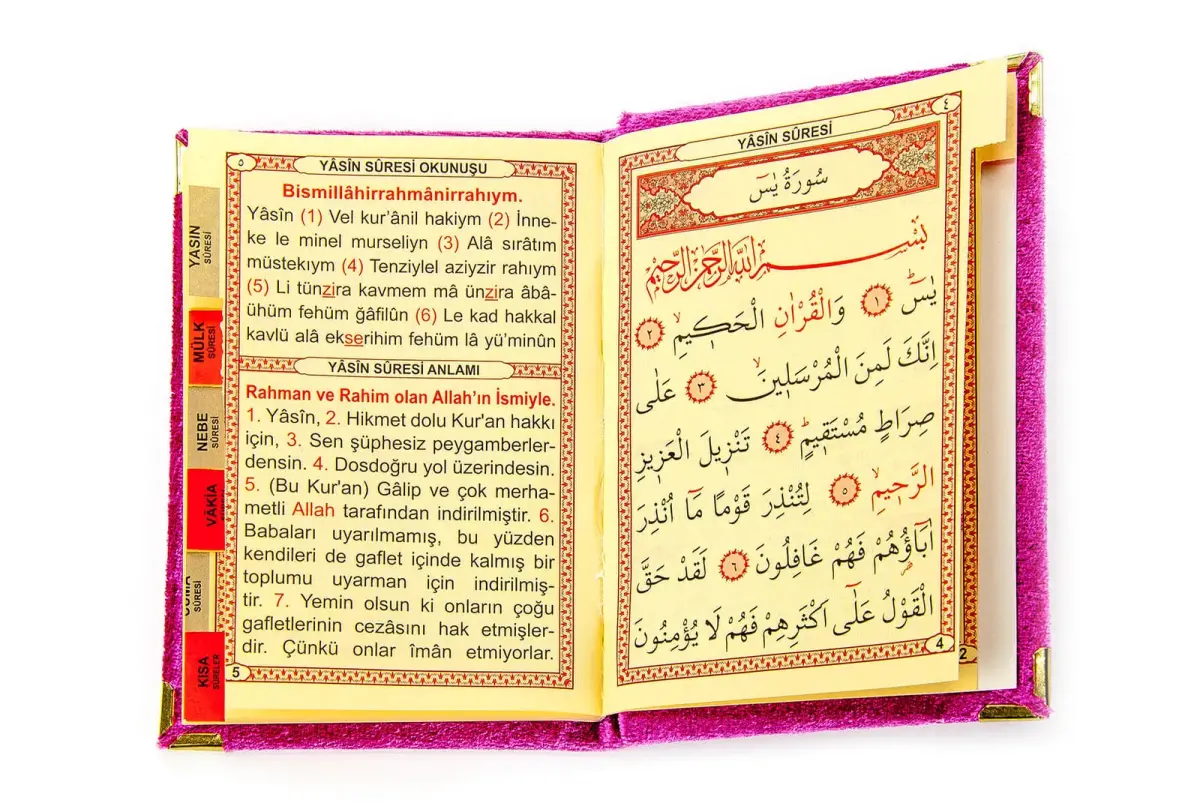 ٤
YÂSÎN SÛRESİ
سُورَةُ يٰسٓ
بِسْمِ اللّٰهِ الرَّحْمٰنِ الرَّحٖيمِ
يٰسٓ ۚ ﴿١﴾ وَالْقُرْاٰنِ الْحَكٖيمِ ۙ ﴿٢﴾
اِنَّكَ لَمِنَ الْمُرْسَلٖينَ ۙ ﴿٣﴾ عَلٰى
صِرَاطٍ مُسْتَقٖيمٍ ۜ ﴿٤﴾ تَنْزٖيلَ الْعَزٖيزِ
الرَّحٖيمِ ۙ ﴿٥﴾ لِتُنْذِرَ قَوْمًا مَٓا اُنْذِرَ
اٰبَٓاؤُ۬هُمْ فَهُمْ غَافِلُونَ ﴿٦﴾ لَقَدْ حَقَّ
الْقَوْلُ عَلٰٓى اَكْثَرِهِمْ فَهُمْ لَا يُؤْمِنُونَ
4
2
٥
YÂSÎN SÛRESİ OKUNUŞU
Bismillâhirrahmânirrahıym.
Yâsîn (1) Vel kur’ânil hakiym (2) İnne-
ke le minel murseliyn (3) Alâ sırâtım
müstekıym (4) Tenziylel aziyzir rahıym
(5) Li tünzira kavmem mâ ünzira âbâ-
ühüm fehüm ğâfilûn (6) Le kad hakkal
kavlü alâ ekserihim fehüm lâ yü’minûn
YÂSÎN SÛRESİ ANLAMI
Rahman ve Rahim olan Allah’ın İsmiyle.
1. Yâsîn, 2. Hikmet dolu Kur'an hakkı
için, 3. Sen şüphesiz peygamberler-
densin. 4. Dosdoğru yol üzerindesin.
5. (Bu Kur'an) Gâlip ve çok merha-
metli Allah tarafından indirilmiştir. 6.
Babaları uyarılmamış, bu yüzden
kendileri de gaflet içinde kalmış bir
toplumu uyarman için indirilmiş-
tir. 7. Yemin olsun ki onların çoğu
gafletlerinin cezâsını hak etmişler-
dir. Çünkü onlar îmân etmiyorlar.
5
YASİN
SÛRESİ
MÜLK
SÛRESİ
NEBE
SÛRESİ
VÂKIA
SÛRESİ
KISA
SÛRELER